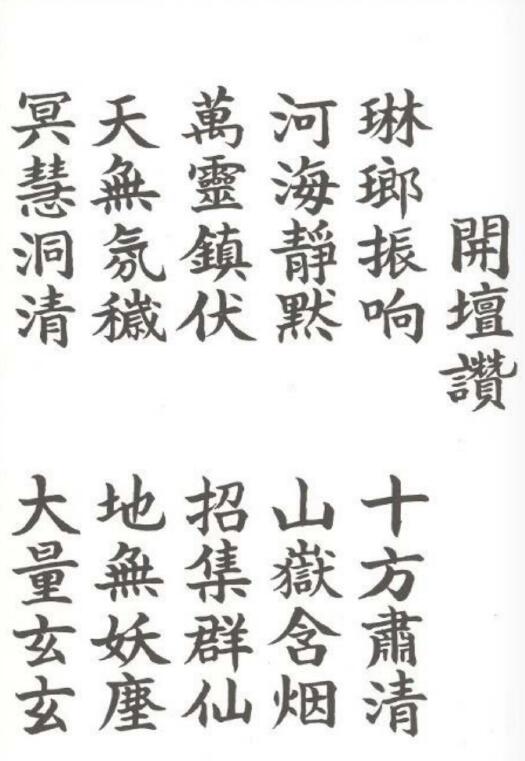 開壇讚
琳瑯振响 十方肅清
河海靜默 山嶽含烟
萬靈鎮伏 招集群仙
天無氛穢 地無妖塵
冥慧洞清 大量玄玄